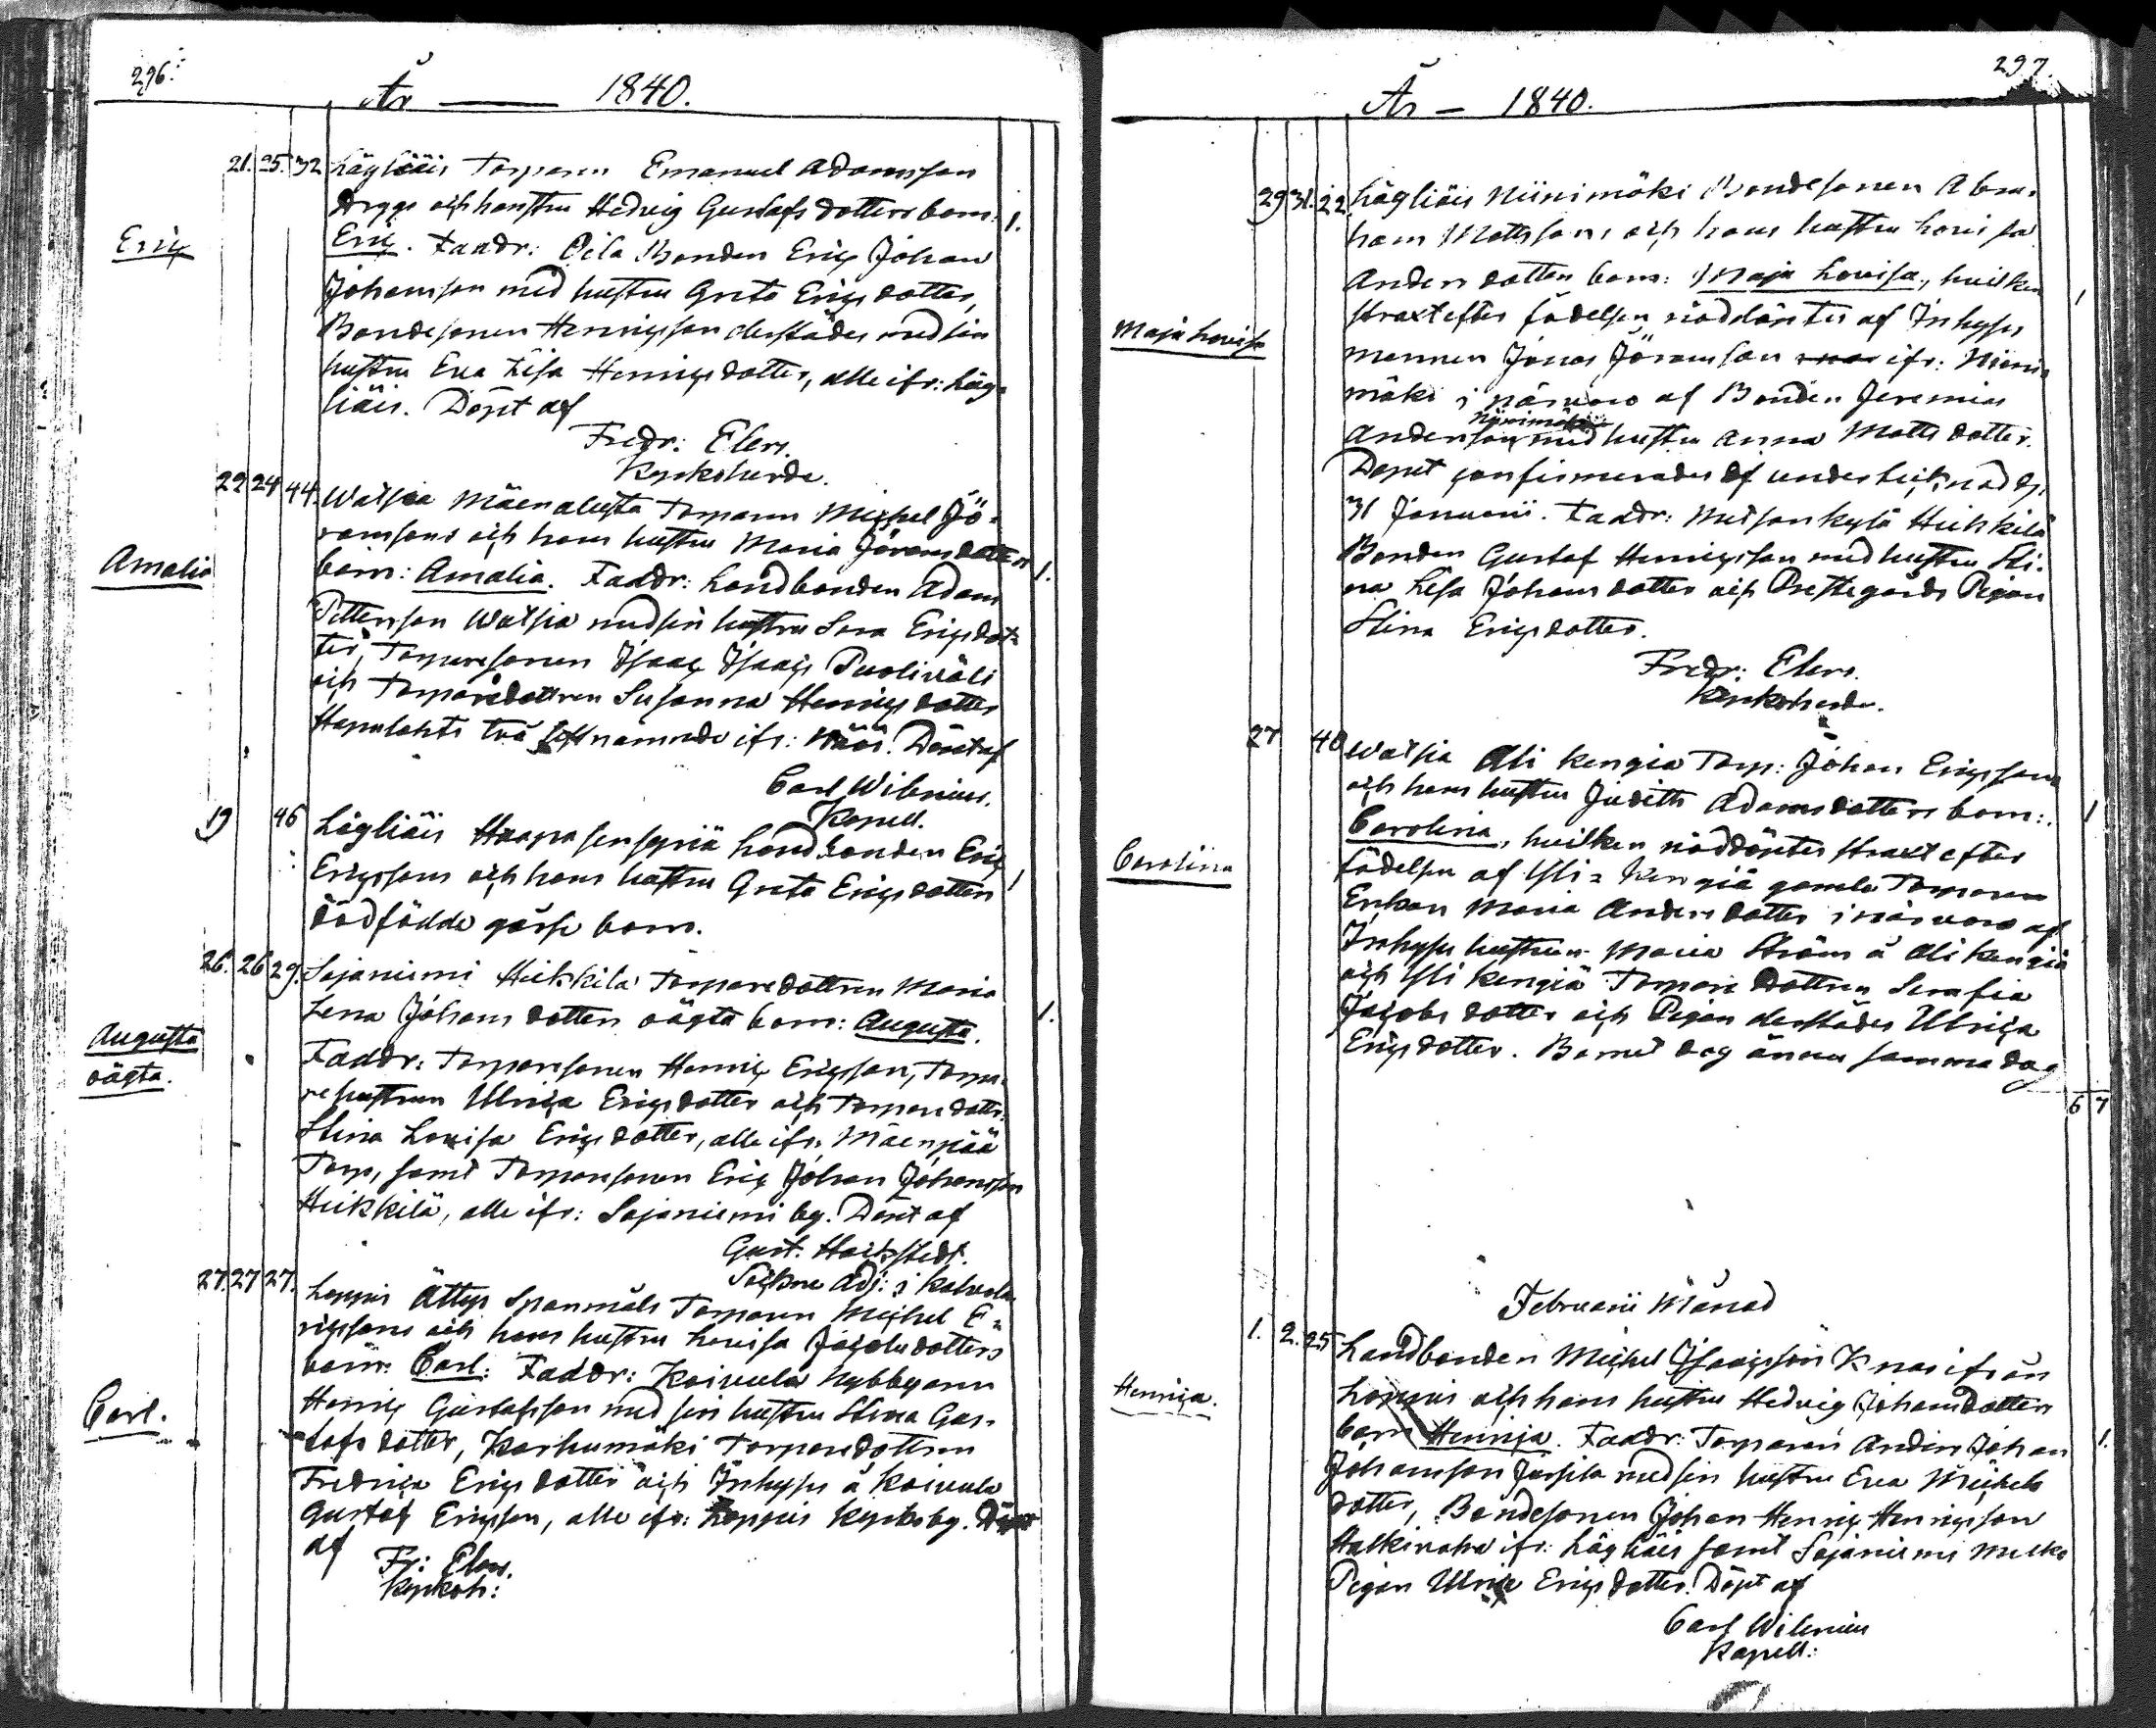 296.
År — 1840.
21. 25. 32 Lägliäis Torparen Emanuel Adamsson
Arpps och hans hustru Hedvig Gustafs dotters barn: 1.
Eric
Eric. Faddr: Oila Bonden Eric Johan
Johansson med hustru Greta Erics dotter,
Bondesonen Henricsson derstädes med sin
hustru Eva Lisa Henrics dotter, alle ifr: Läg-
liäis. Döpt af
Fredr: Elers.
Kyrkoherde.
22 24 44. Watsia Mäenalusta Torparen Michel Jö-
ramsons och hans hustru Maria Jörans dotters 1.
Amalia
barn: Amalia. Faddr: Landbonden Adam
Pettersson Watsia med sin hustru Sara Erics dot-
ter, Torparesonen Isaac Isaacs Puoliväli
och Torparedottren Susanna Henrics dotter
Hapulahti två sistnämnde ifr: Nääs. Döpt af
Carl Wilenius.
Kapell.
19 46 Lägliäis Haapasensyriä Landbonden Eric
Ericssons och hans hustru Greta Erics dotters 1
dödfödde gosse barn.
26. 26 29. Sajaniemi Heikkilä Torparedottren Maria
Lena Johans dotters oägta barn: Augusta. 1.
Augusta
oägta.
Faddr: Torparesonen Henric Ericsson, Torpa-
rehustrun Ulrica Erics dotter och Torpare dottr:
Stina Lovisa Erics dotter, alle ifr: Mäenpää
Torp, samt Torparesonen Eric Johan Johansson
Heikkilä, alle ifr: Sajaniemi by. Döpt af
Gust. Hackstedt.
Sockne Adj: i Kalvola
27. 27 27. Loppis Ättys Spanmåls Torparen Michel E-
ricssons och hans hustru Lovisa Jacobs dotters
Carl.
barn: Carl: Faddr: Koivula Nybbyaren
Henric Gustafsson med sin hustru Stina Gus-
tafs dotter, Karhumäki Torparedottren
Fredrica Erics dotter och Inhyses å Koivula
Gustaf Ericsson, alle ifr: Loppis Kyrkoby. Döpt
af
Fr: Elers.
Kyrkoh:
297.
År — 1840.
29 31. 22 Lägliäis Niinimäki Bondesonen Abra-
ham Mattssons och hans hustru Lovisa
Anders dotters barn: Maja Lovisa, hvilken 1
Maja Lovisa
straxt efter födelsen nöddöptes af Inhyses
mannen Jonas Jöransson ifr: Niini-
mäki i närvaro af Bonden Jeremias
Niinimäki
Andersson med hustru Anna Matts dotter.
Dopet confirmerades af undertecknad d.
31 Januarii. Faddr: Metsänkylä Heikkilä
Bonden Gustaf Henricsson med hustru Sti-
na Lisa Johans dotter och Prestegårds Pigan
Stina Erics dotter.
Fredr: Elers.
Kyrkoherde.
27 40 Watsia Ali Kengiä Torp: Johan Ericssons
och hans hustru Judith Adams dotters barn: 1
Carolina
Carolina, hvilken nöddöptes straxt efter
födelsen af Yli-Kengiä gamla Torparen
Enkan Maria Anders dotter i närvaro af
Inhyses hustrun Maria Ström å Ali Kengiä
och Yli Kengiä Torpare Dottren Serafia
Jacobs dotter och Pigan derstädes Ulrica
Erics dotter. Barnet dog ännu samma dag
6 7
Februarii Månad
1. 2. 25 Landbonden Michel Isaacsson Knas ifrån
Henrica.
Loppis och hans hustru Hedvig Johans dotters
barn Henrica. Faddr: Torparen Anders Johan 1.
Johansson Jussila med sin hustru Eva Michels
dotter, Bondesonen Johan Henric Henricsson
Hatkivaha ifr: Lägliäis samt Sajaniemi
Pigan Ulrica Erics dotter. Döpt af
Carl Wilenius
Kapell: